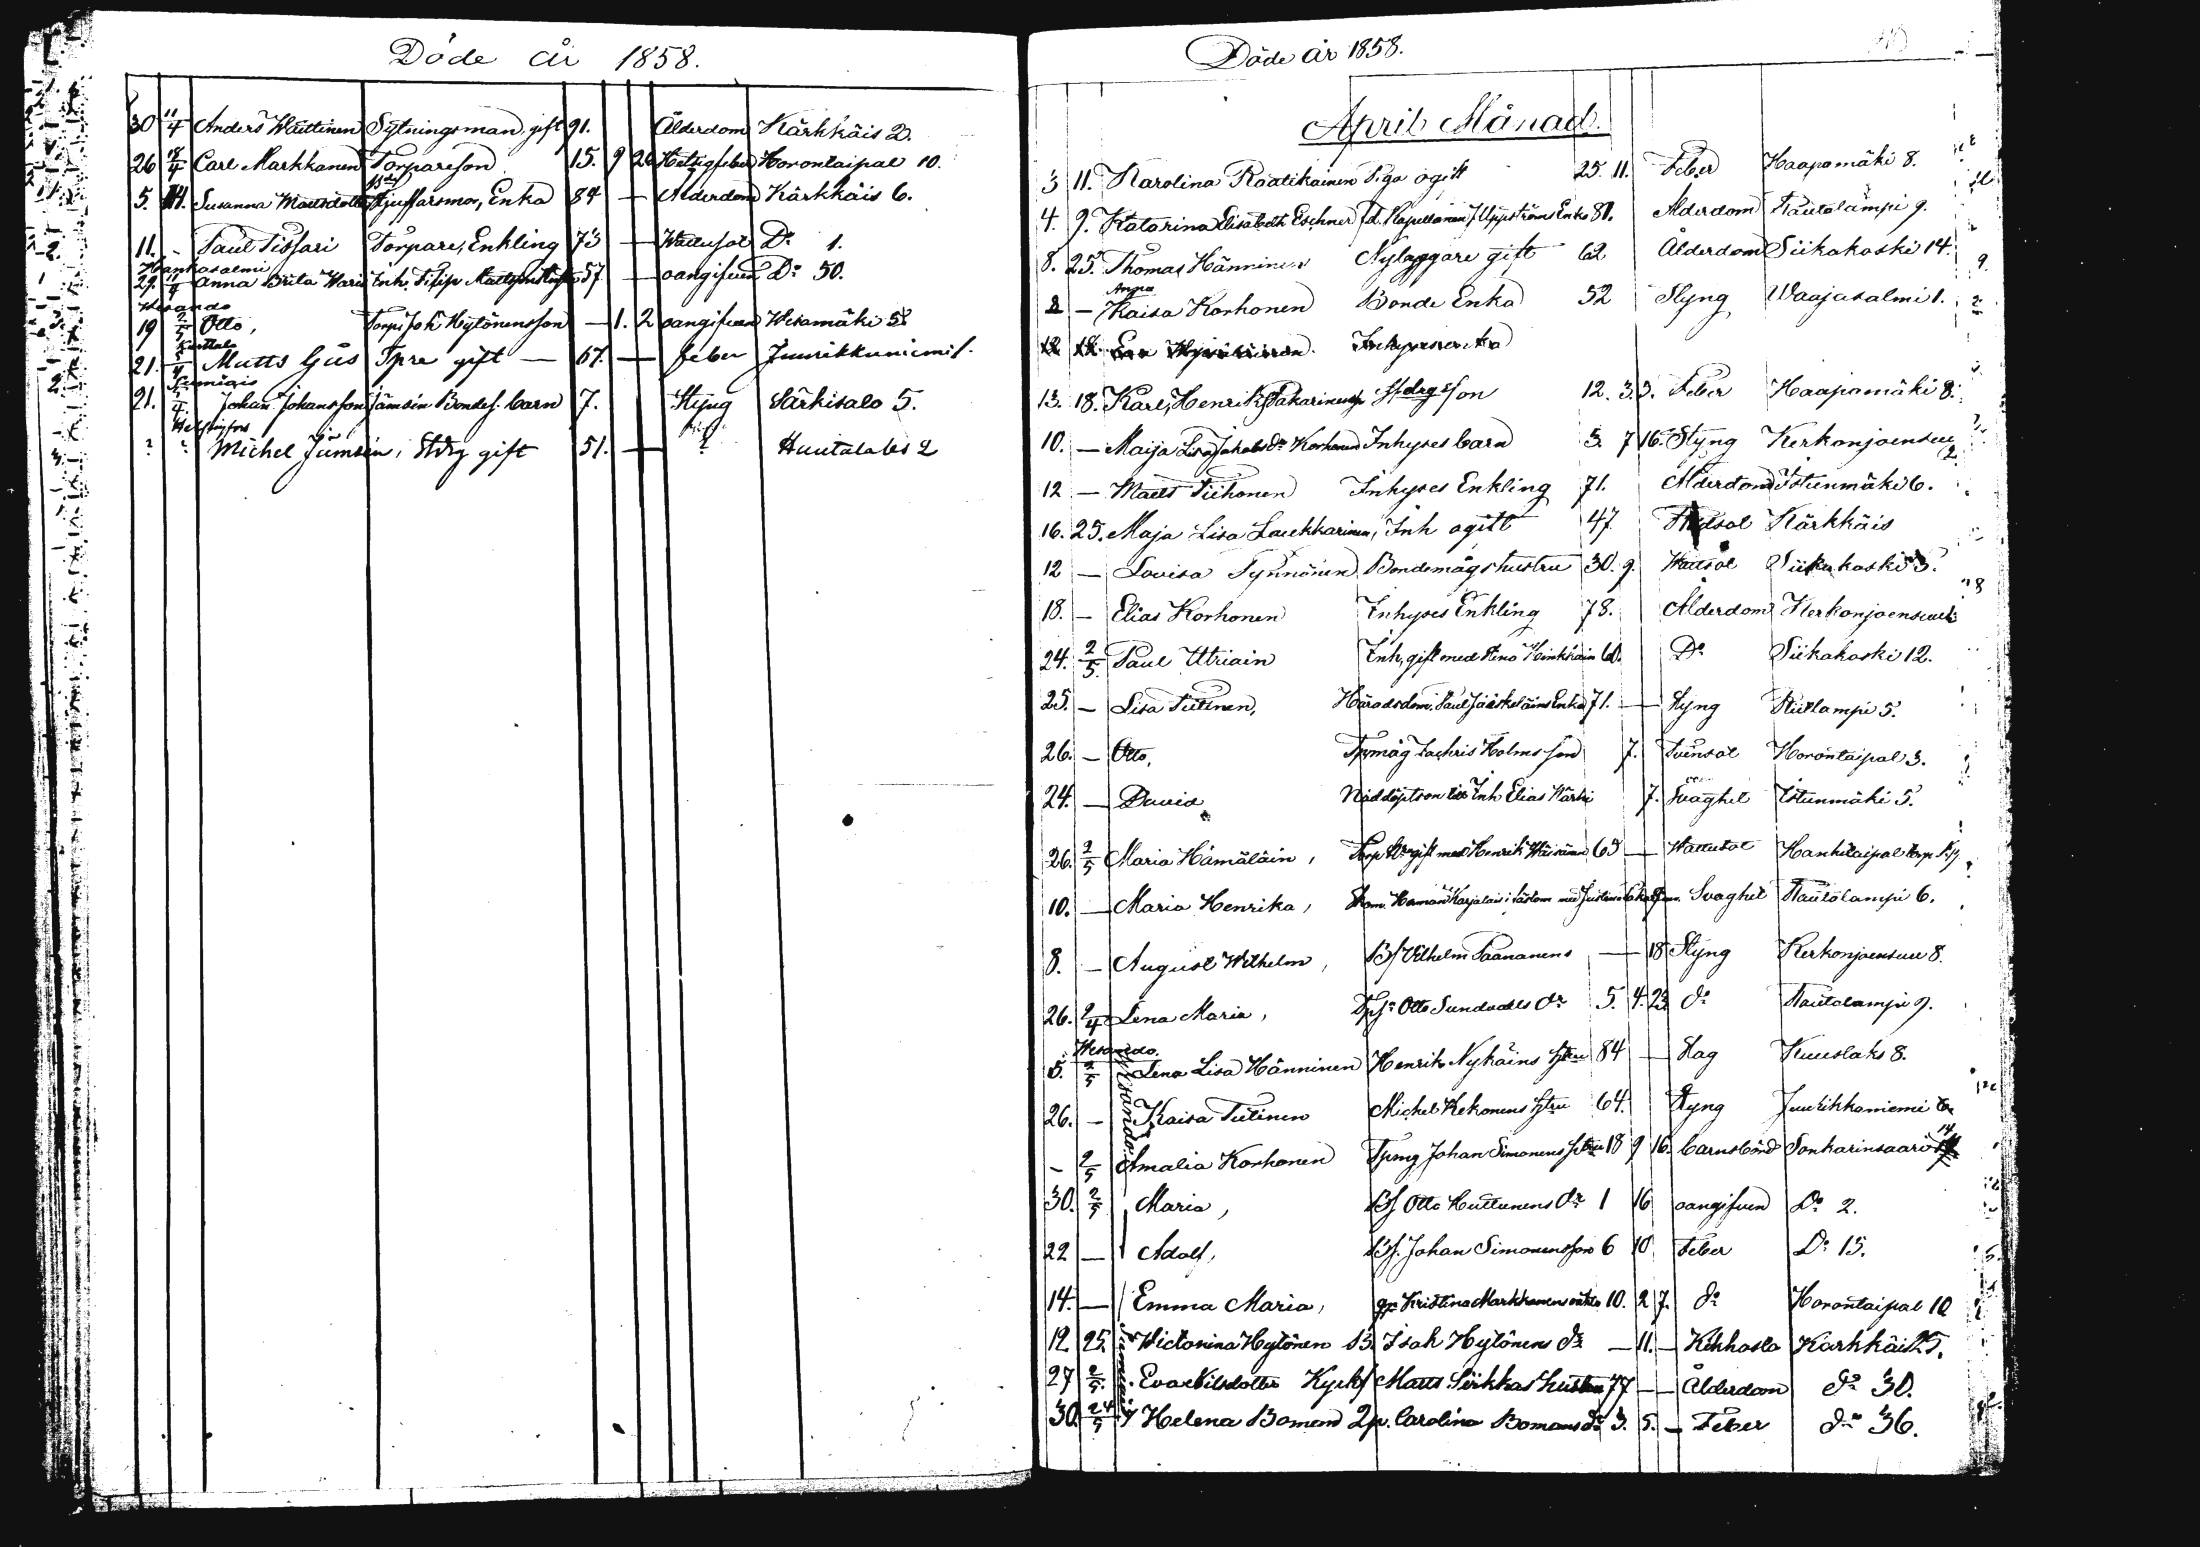 Döde år 1858.
30 11/4 Anders Wäittinen Sytningsman, gift 91. Ålderdom Kärkkäis 2.
26 18/4 Carl Markkanen Torpareson 15. 9 26 Hetsigfeber Horontaipal 10.
5. Susanna Mattsdotter Enka 84 — Ålderdom Kärkkäis 6.
11. - Paul Tissari Torpare, Enkling 73 — Wattusot Do 1.
Hankasalmi
29. 11/4 Anna Brita Enk. Filip 57 — oangifven Do 50.
Wesando
19 2/5 Otto, Torp: Joh Hytönensson — 1. 2 oangifven Wesamäki 5
Karttula
21. Matts Gås Tpre gift — 67. — feber Juurikkaniemi 1.
21. Johan Johansson Jämsén Bondes. barn 7. Styng Särkisalo 5.
Helsingfors
? ? Michel Jämsén, Stdrg gift 51. — ? Huutalaks 2
Döde år 1858.
April Månad.
3 11. Karolina Raatikainen P:ga ogift 25. 11. Feber Haapamäki 8.
4. 9. Katarina Elisabeth Eschner fd. Kapellanen J Uppströms Enka 81. Ålderdom Rautalampi 9.
8. 25. Thomas Hänninen Nylaggare gift 62 Ålderdom Siikakoski 14.
Anna
2 — Kaisa Korhonen Bonde Enka 52 Styng Waajasalmi 1.
12 18. Eva
13. 18. Karl, Henrik Stdrgsson 12. 3. 3. Feber Haapamäki 8.
10. — Maija Lisa Jakobsdr Korhonen Inhyses barn 3. 7 16. Styng Kerkonjoensuu 2.
12 — Matts Tiihonen Inhyses Enkling 71. Ålderdom Istunmäki 6.
16. 25. Maja Lisa Laukkarinen, Inh ogift 47. Kärkkäis
12 — Lovisa Tynnönen Bondemågshustru 30. 9. Wattsot Siikakoski 3.
18. — Elias Korhonen Inhyses Enkling 78. Ålderdom Kerkonjoensuu
24. 2/5. Paul Utriain Inh, gift med Stina Minkkäin 60. Do Siikakoski 12.
25. — Lisa Tiitinen, Häradsdom. Paul Jääskeläins Enka 71. — Styng Kiitlampi 5.
26. — Otto, Tpmåg Zachris Holms son 7. Tvinsot Horontaipal 3.
24. — David, Nöddöptson till Inh Elias Kärki 7. Svaghet Istunmäki 5.
26. 2/5 Maria Hämäläin, gift med Henrik Wäisänen 63 — Wattusot Hankitaipal
10. — Maria Henrika, Herman Karjalais Svaghet Rautalampi 6.
8. — August Wilhelm, B/ Vilhelm Paananens — 18 Styng Kerkonjoensuu 8.
26. 2/4 Lena Maria, Otto Sundvalls dr 5. 4. 23 do Rautalampi 9.
Wesando.
5. 2/5 Lena Lisa Hänninen Henrik Nykäins hstru 84 — Slag Kuuslaks 8.
26. — Kaisa Tiitinen Michel Kekonens hstru 64. Styng Juurikkaniemi 6
Wesando
- 2/5 Amalia Korhonen Tpmg Johan Simonens hstru 18 9 16. barnsbörd Sonkarinsaari 14
30. 2/5 Maria, Bf Otto Huttunens dr 1 16 oangifven Do 2.
22 — Adolf, Bf. Johan Simonensson 6 10 Feber Do 15.
14. — Emma Maria, qp. Kristina Markkanens oäkta 10. 2 7. do Horontaipal 10
12 25 Wictorina Hytönen B. Isak Hytönens dr — 11. — Kikhosta Kärkkäis 25.
27 2/5. Eva Nilsdotter Kyrkf Matts Sirkkas hustru 77 — — Ålderdom do 30.
30. 24/5 Helena Boman Qp. Carolina Bomans dr 3. 5. — Feber do 36.